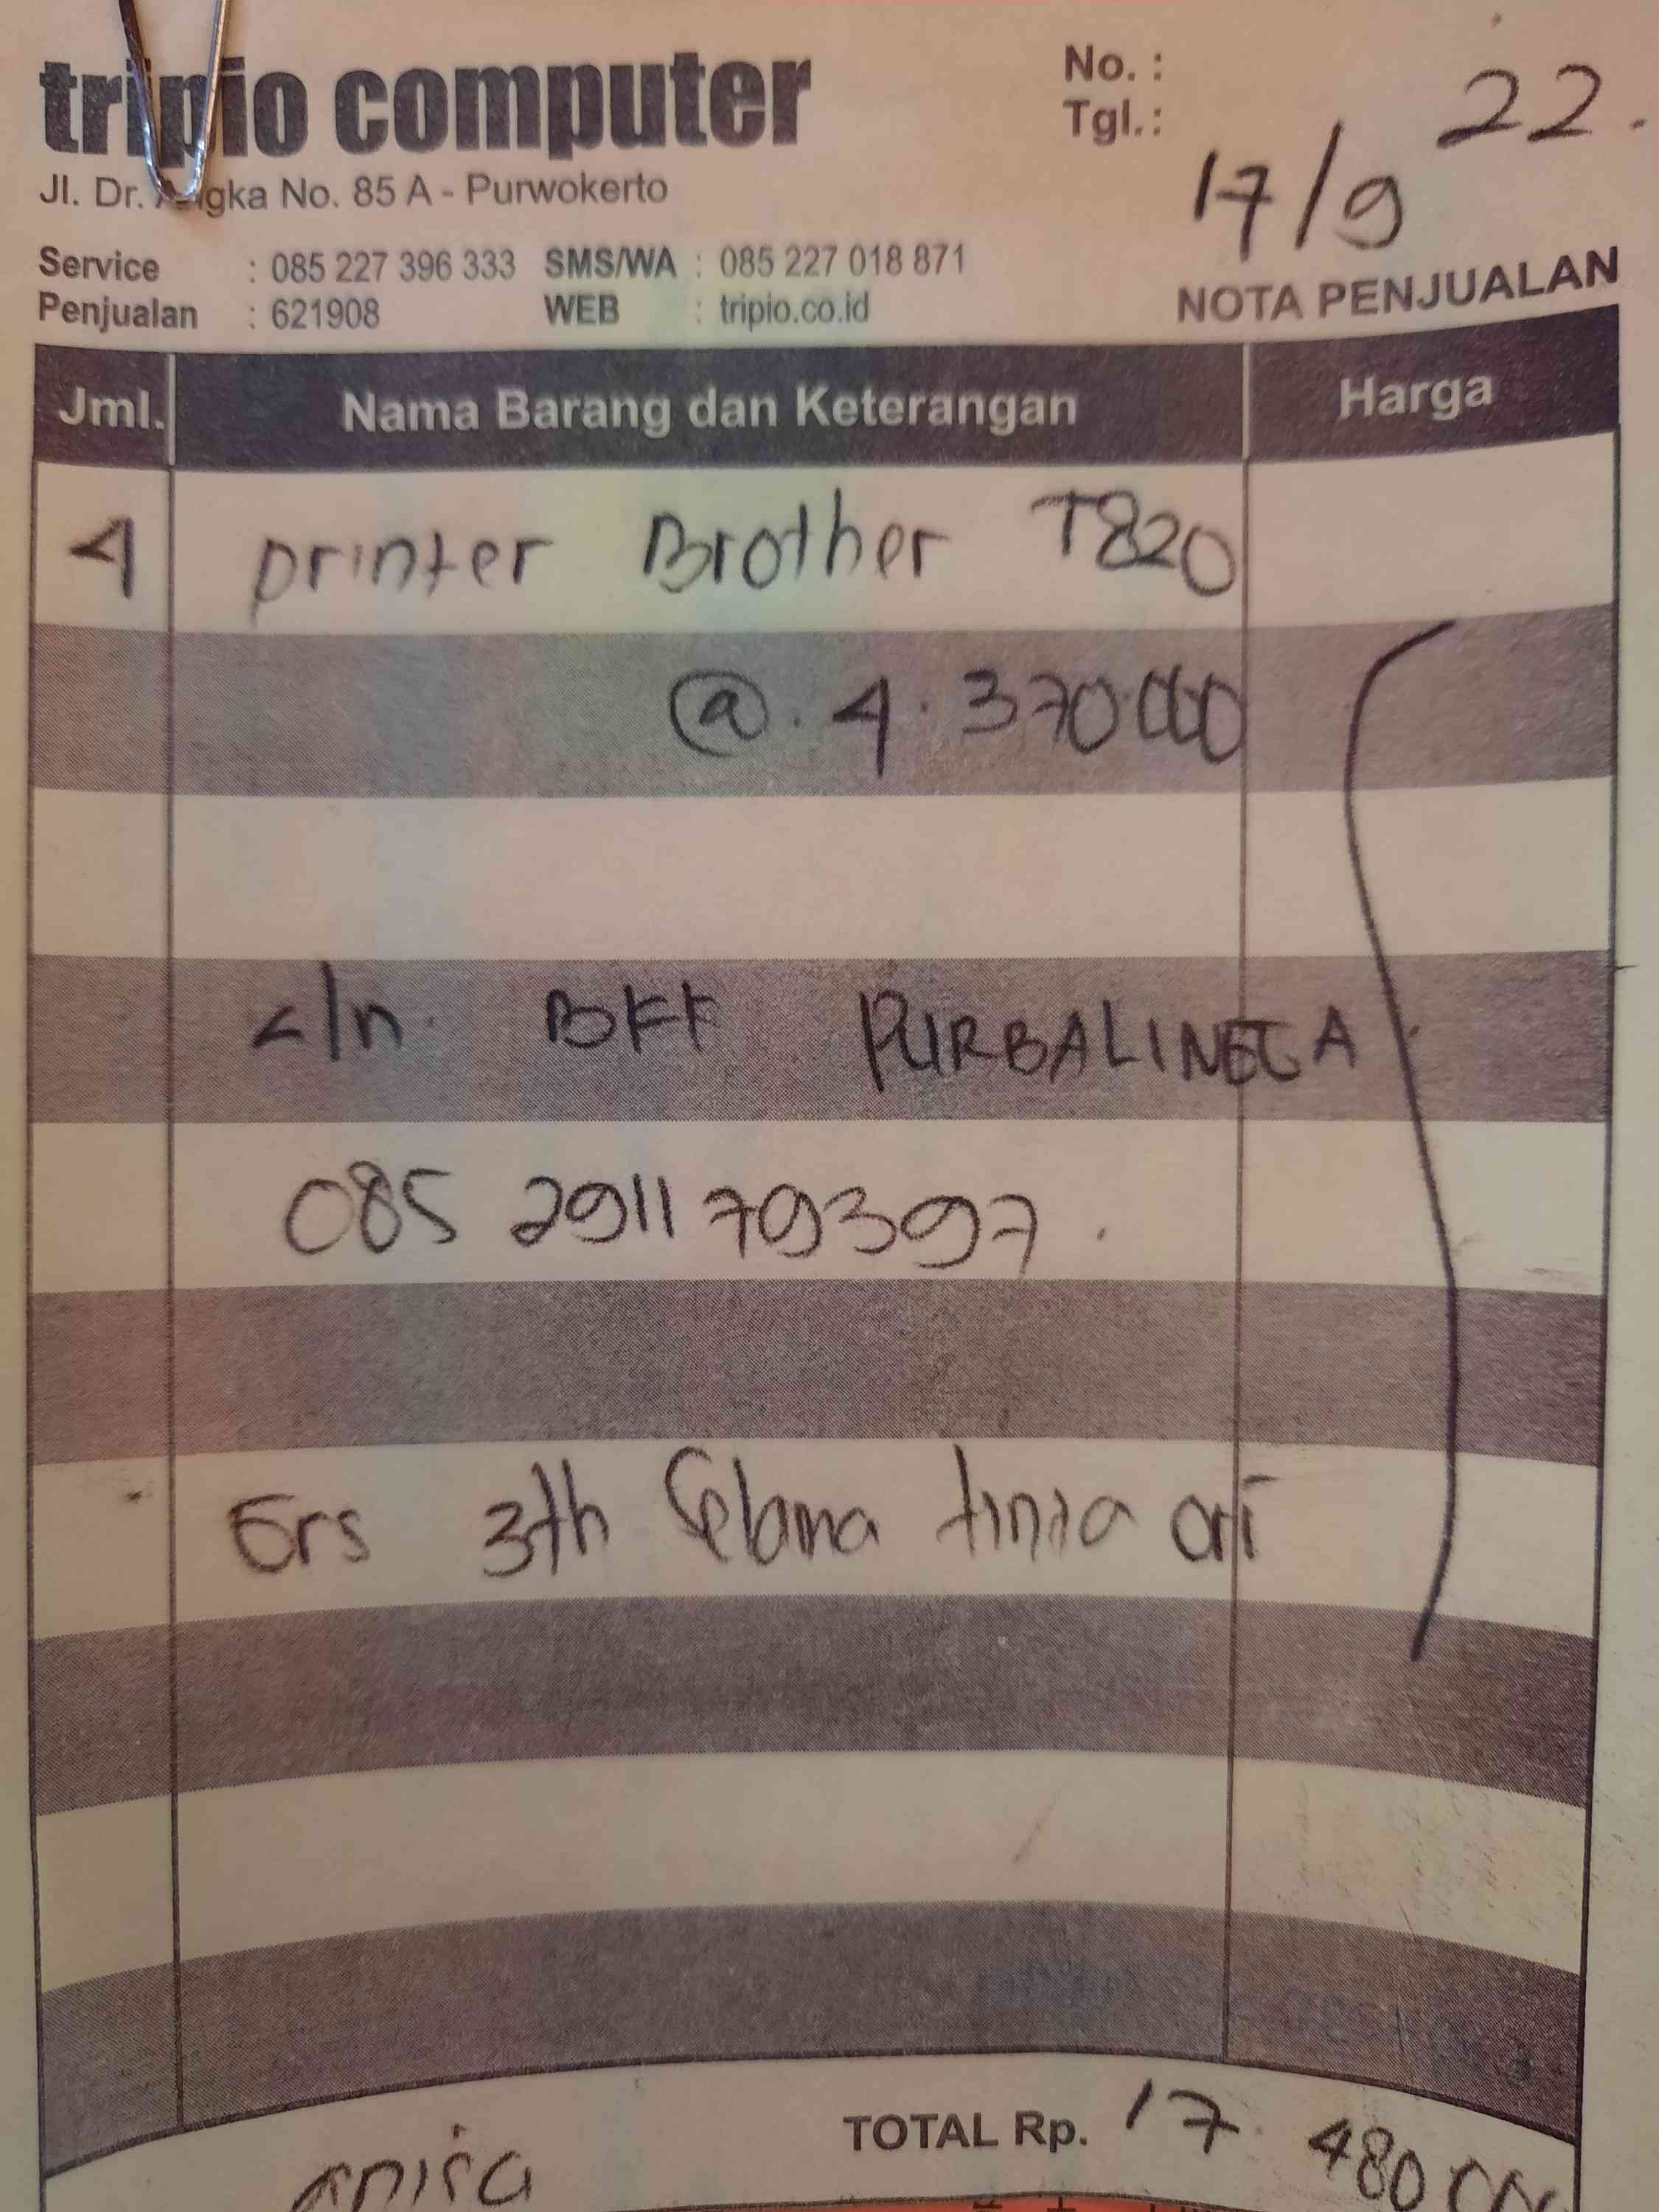 tripio computer
Jl. Dr. Angka No. 85 A - Purwokerto
Service : 085 227 396 333 SMS/WA : 085 227 018 871
Penjualan : 621908 WEB : tripio.co.id
No. :
Tgl. : 17/9 22.
NOTA PENJUALAN
Jml. Nama Barang dan Keterangan Harga
4 printer Brother T820
@. 4.370.000
a/n BFF PURBALINGGA
085 291179397.
Grs 3th Selama tinta ori
TOTAL Rp. 17.480.000
anisa